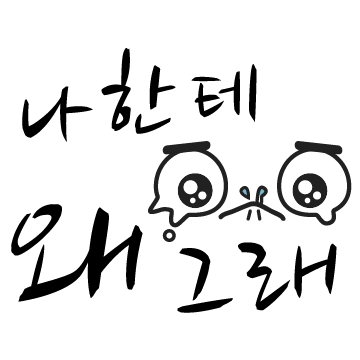 나한테
왜 그래